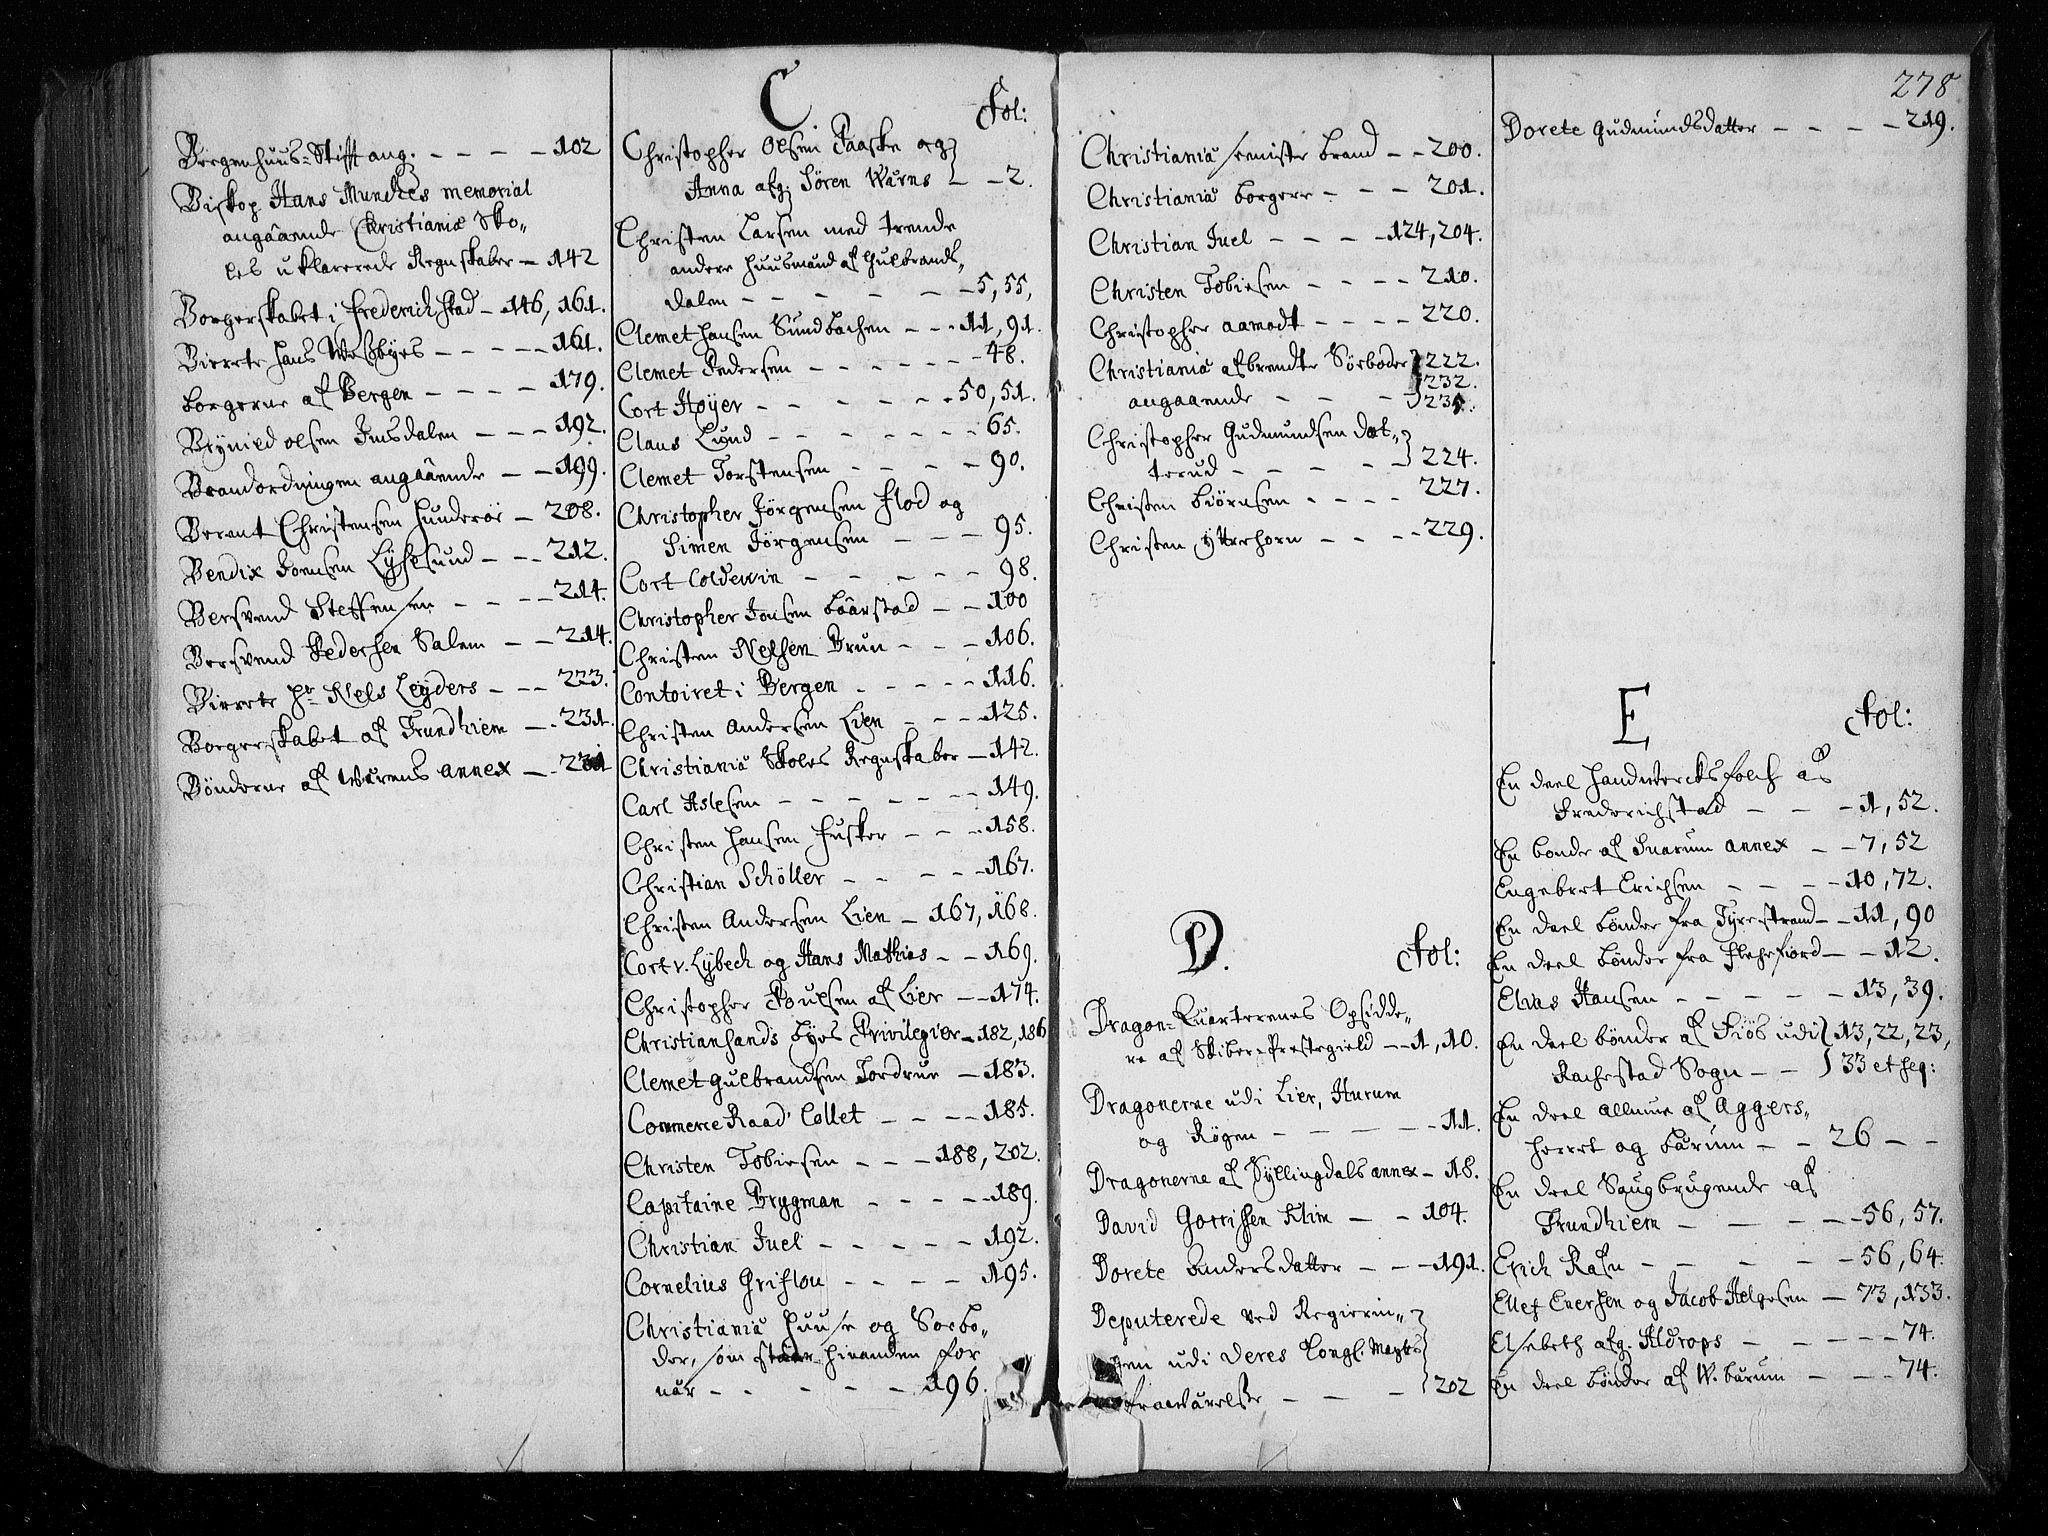 Bergenhuus-Stifft ang. - - - - 102
Biskop Hans Mundtes memorial
angaaende Christianiæ Sko„
les uklarerede Regnskaber - 142
Borgerskabet i Frederichstad - 146, 161.
Birrete Hans - - - - - 161.
borgerne af Bergen - - - - 179.
Brynild olsen Imsdalen - - - 192.
Brandordningen angaaende - - 199.
Berent Christensen Hunderøe - 208.
Bendix Joensen Lyhesund - - - 212.
Bersvend Steffensen - - - - 214.
Bersvend Pedersen Salem - - 214.
Birrete Hr Niels Leyders - - - 223.
Borgerskabet af Trundhiem - - 231.
Bønderne af Wurens annex - - 231
C
Fol:
Christopher Olsen Faaske og
Anna afg. Søren Warns - - 2.
Christen Larsen med trende
andere Huusmænd af Gulbrands„
dalen - - - - - - 5, 55,
Clemet Hansen Sundbachen - - - 11, 91.
Clemet Pedersen - - - - - - 48.
Cort Høyer - - - - - - 50, 51.
Claus Lund - - - - - - 65.
Clemet Torstensen - - - - - 90.
Christopher Jørgensen Flod og
Simen Jørgensen - - - 95.
Cort Coldewin - - - - - 98.
Christopher Jonsen baarstad - - 100
Christen Nelsen Brun - - - 106.
Contoiret i Bergen - - - - - 116.
Christen Andersen Lien - - - 125.
Christianiæ Skoles Regnskaber - 142.
Carl Aslesen - - - - - - 149.
Christen Hansen Fusker - - - 158.
Christian Schöller - - - - - 167.
Christen Andersen Lien - 167, 168.
Cort v. Lybech og Hans Mathias - - 169.
Christopher Poulsen af Lier - - 174.
Christiansands byes Privilegier - 182, 186
Clemet Gulbrandsen Tordrue - 183.
Commerce Raad Collet - - - - 185.
Christen Tobiesen - - - 188, 202.
Capitaine Brygman - - - - - 189.
Christian Juel - - - - - 192.
Cornelius Griflou - - - - 195.
Christianiæ Huuse og Soebo„
der, som staae hinanden for
når - - - - - - 196.
Christianiæ seeniste brand - - 200.
Christianiæ borgere - - - - 201.
Christian Juel - - - - 124, 204.
Christen Tobiesen - - - - 210.
Christopher aamodt - - - - 220.
Christianiæ afbrendte Søeboder 222.
232.
angaaende - - - 235.
Christopher Gudmundsen dat„
terud - - - - - 224.
Christen biørnsen - - - - 227.
Christen ytterhorn - - - - 229.
D.
Fol:
Dragon-Quarterenes Opsidde„
re af Skiber-Prestegield - - 1, 10.
Dragonerne udi Lier, Hurum
og Røgen - - - - - 11.
Dragonerne af Syllingdals annex - 18.
David Gorrissen Klim - - - 104.
Dorete andersdatter - - - 191.
Deputerede ved Regierin„
gen udi Deres Kongl. Mayts
fraværelse - - - 202
278
Dorete Gudmundsdatter - - - - 219.
E
Fol:
En deel Handwercksfolch af
Frederichstad - - - 1, 52.
En bonde af Snarum annex - - 7, 52
Engebret Erichsen - - - - 10, 72.
En deel bønder fra Tyrestrand - - 11, 90
En deel bønder fra Flehefiord - - 12.
Elias Hansen - - - - - 13, 39.
En deel bønder af udi 13, 22, 23,
Rachestad Sogn - - 33 et seq:
En deel allmue af Aggers„
herret og bærum - - 26 - -
En deel Saugbrugende af
Trundhiem - - - - - 56, 57.
Erich Rafn - - - - - 56, 64.
Ellef Eversen og Jacob Helgesen - 73, 133.
Elsebeth afg. Aldrops - - - - - 74.
En deel bønder af W. bærum - - - - 74.